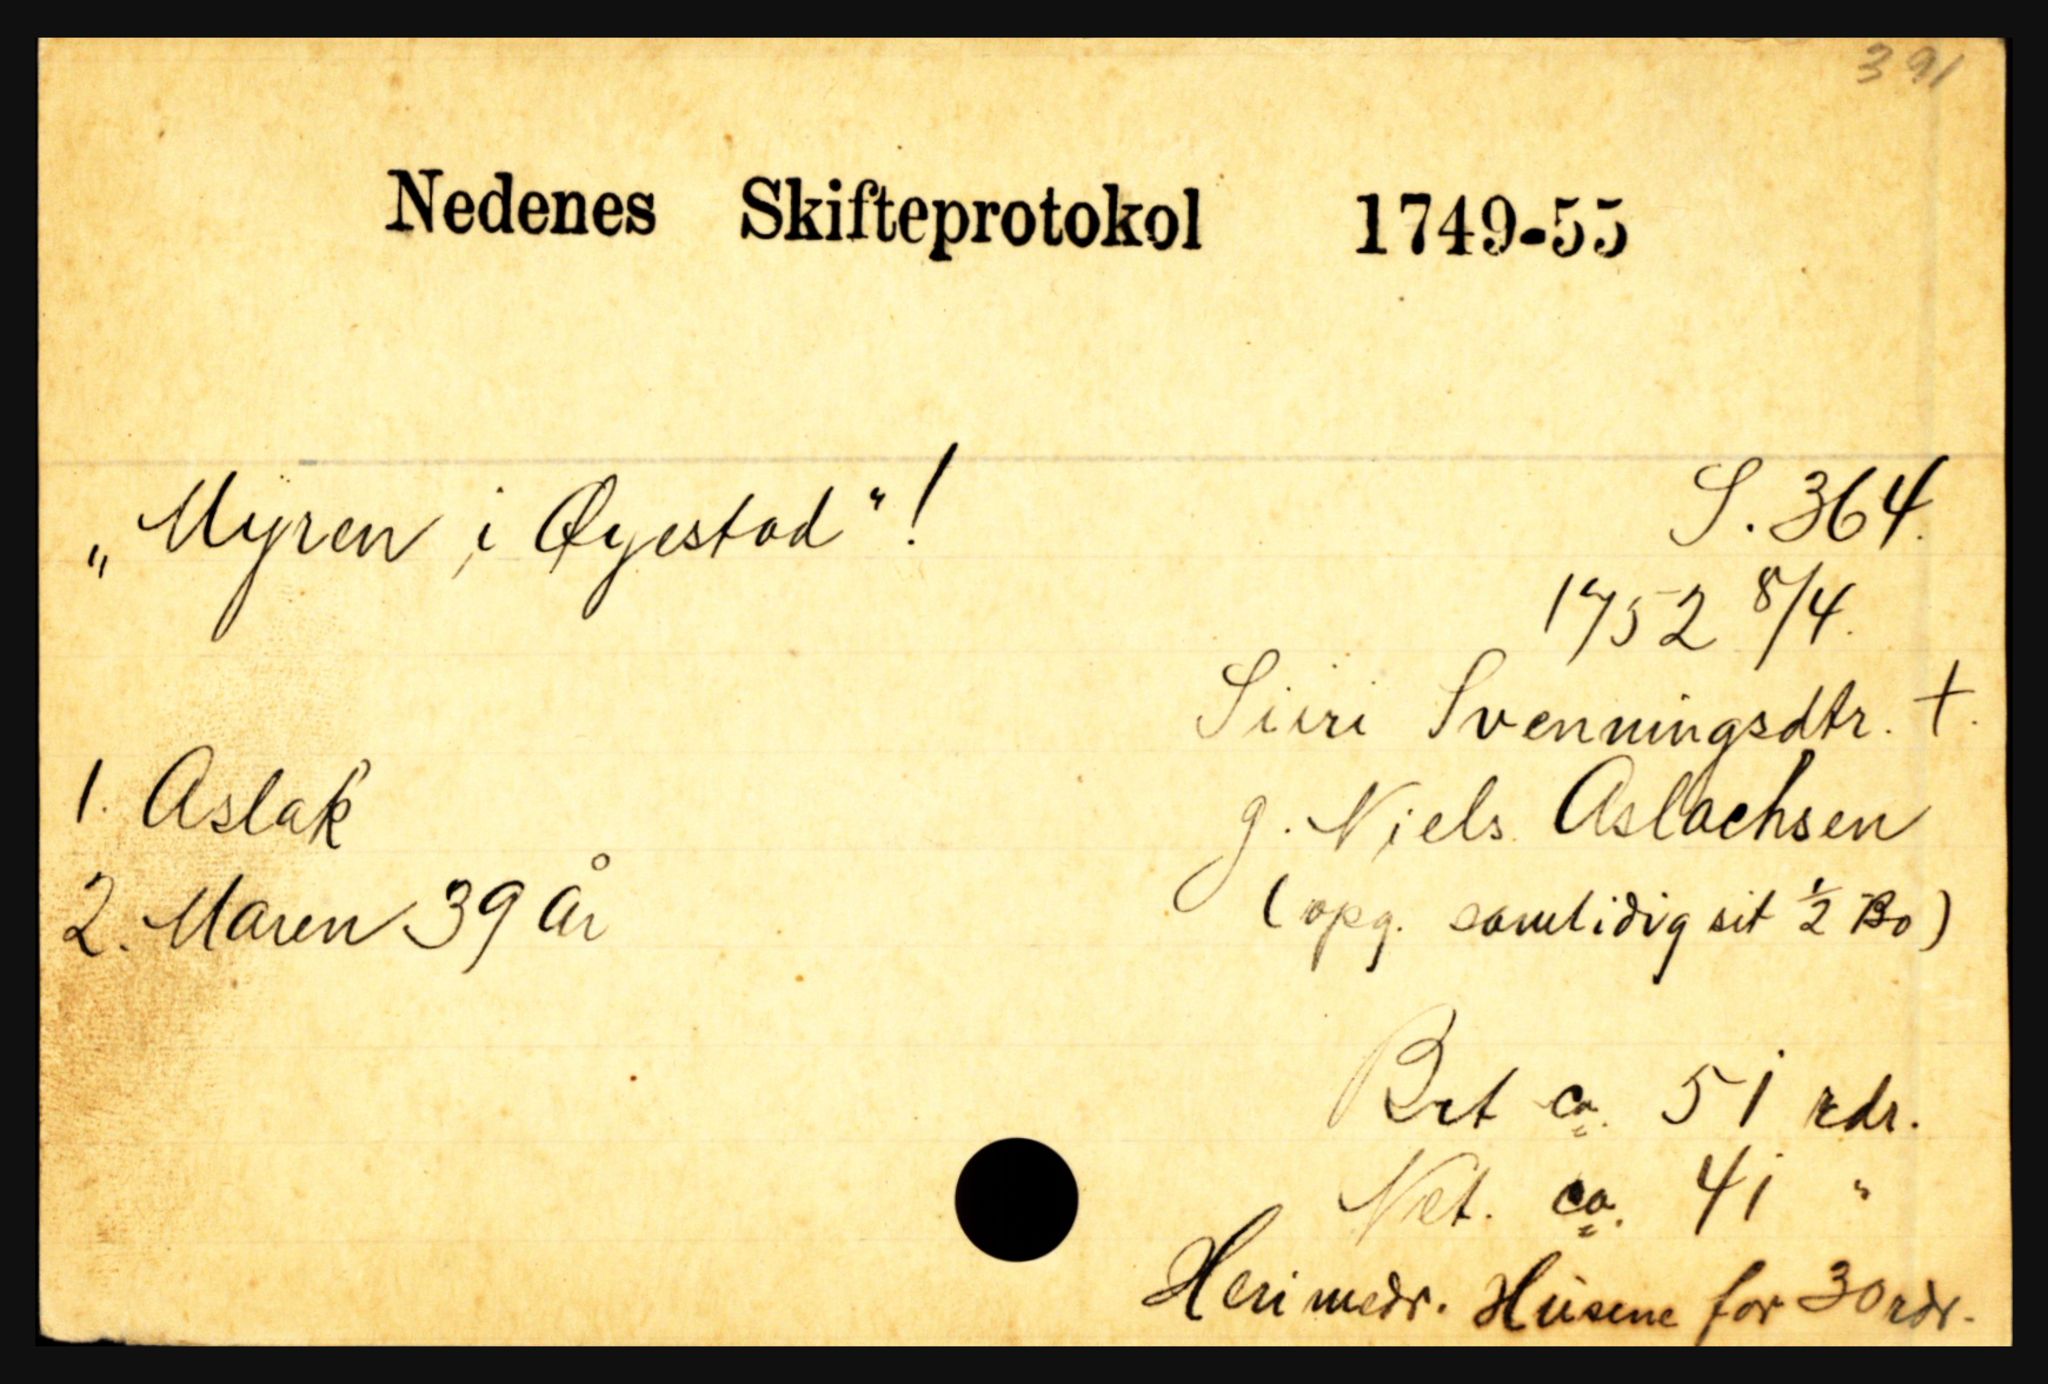 391
Nedenes Skifteprotokol 1749-55
„Myren i Øyestad“!
S. 364.
1752 8/4.
Siiri Svenningsdtr. †.
1. Aslak
g. Niels Aslachsen
2. Maren 39 år
(opg. samtidig sit ½ Bo)
Brt ca. 51 rdr.
Net. ca. 41 "
Heri medr. Husene for 30 rdr.